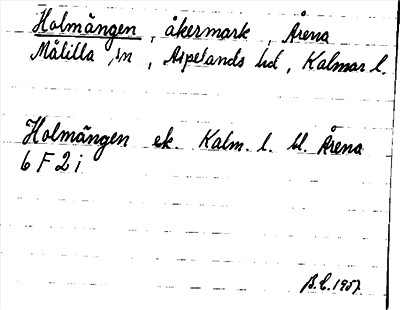 Holmängen, åkermark, Årena
Målilla sn, Aspelands hd, Kalmar l.
Holmängen ek. Kalm. l. bl. Årena
6 F 2 i
B.E. 1957